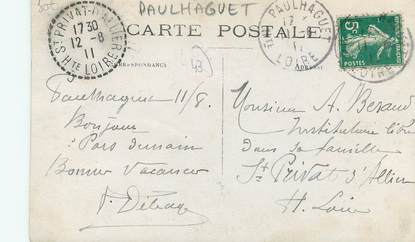 PAULHAGUET
CARTE POSTALE
St PRIVAT-D'ALLIER
1730
12-8
11
Hte LOIRE
PAULHAGUET
LOIRE
5c
43
CORRESPONDANCE
Paulhaguet 11/8.
Bonjour
Pars demain
Bonnes vacances
Monsieur A. Beraud
Instituteur libre
dans sa famille
St Privat d'Allier
H. Loire